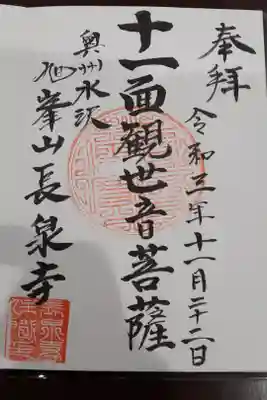 奉拝
令和三年十一月二十二日
十一面観世音菩薩
奥州水沢
峯山長泉寺